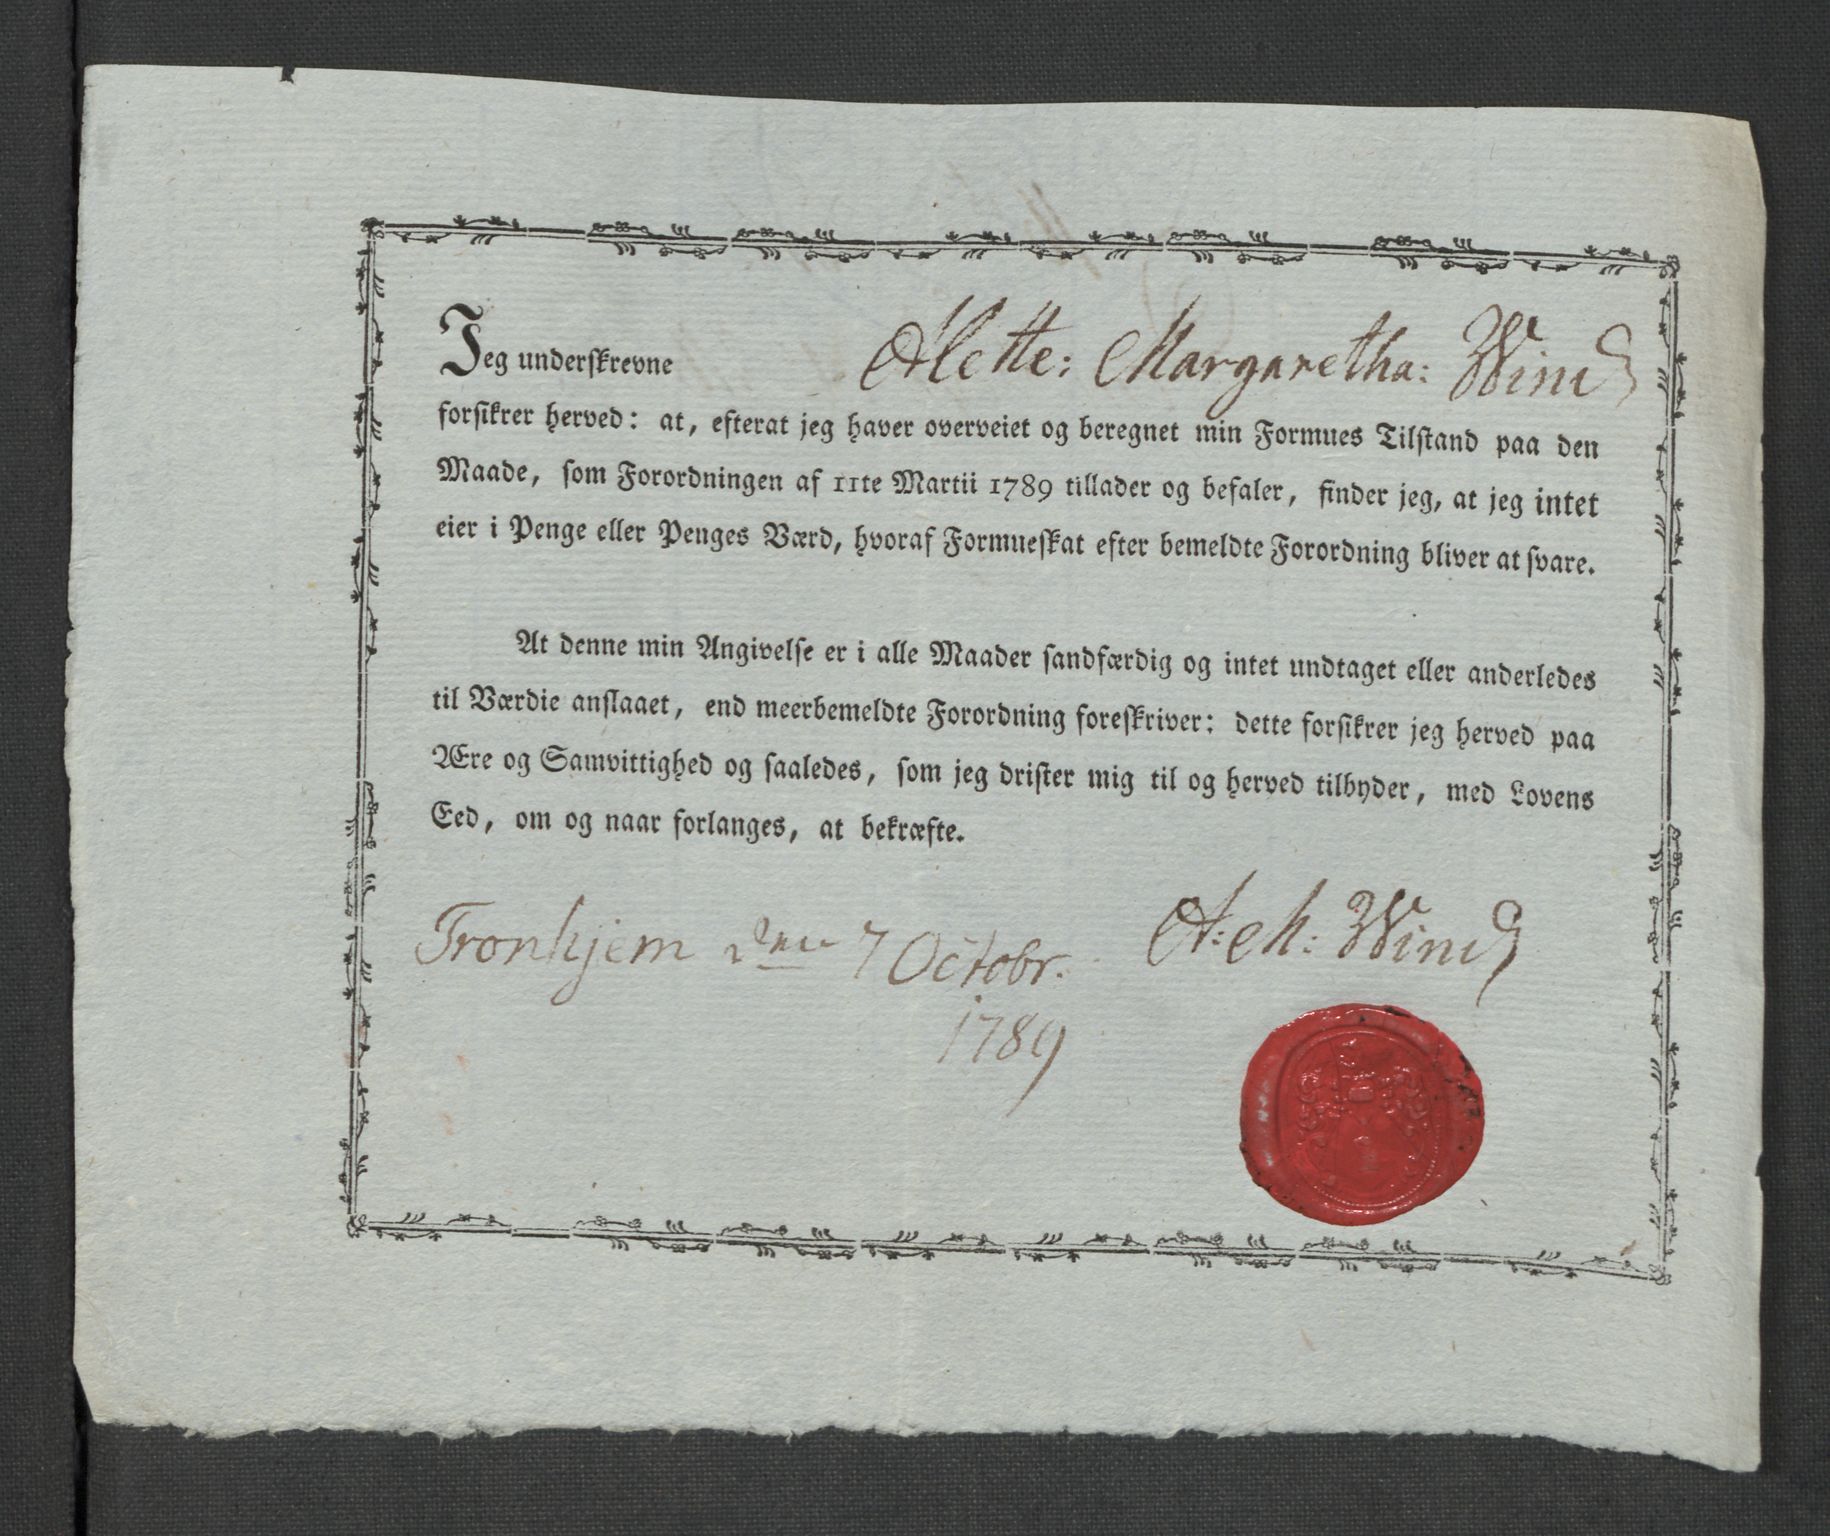 Jeg underskrevne Alette: Margaretha: Wind
forsikrer herved: at, efterat jeg haver overveiet og beregnet min Formues Tilstand paa den
Maade, som Forordningen af 11te Martii 1789 tillader og befaler, finder jeg, at jeg intet
eier i Penge eller Penges Værd, hvoraf Formueskat efter bemeldte Forordning bliver at svare.
At denne min Angivelse er i alle Maader sandfærdig og intet undtaget eller anderledes
til Værdie anslaaet, end meerbemeldte Forordning foreskriver: dette forsikrer jeg herved paa
Ære og Samvittighed og saaledes, som jeg drister mig til og herved tilbyder, med Lovens
Eed, om og naar forlanges, at bekræfte.
Tronhjem den 7 Octobr. A: M: Wind
1789